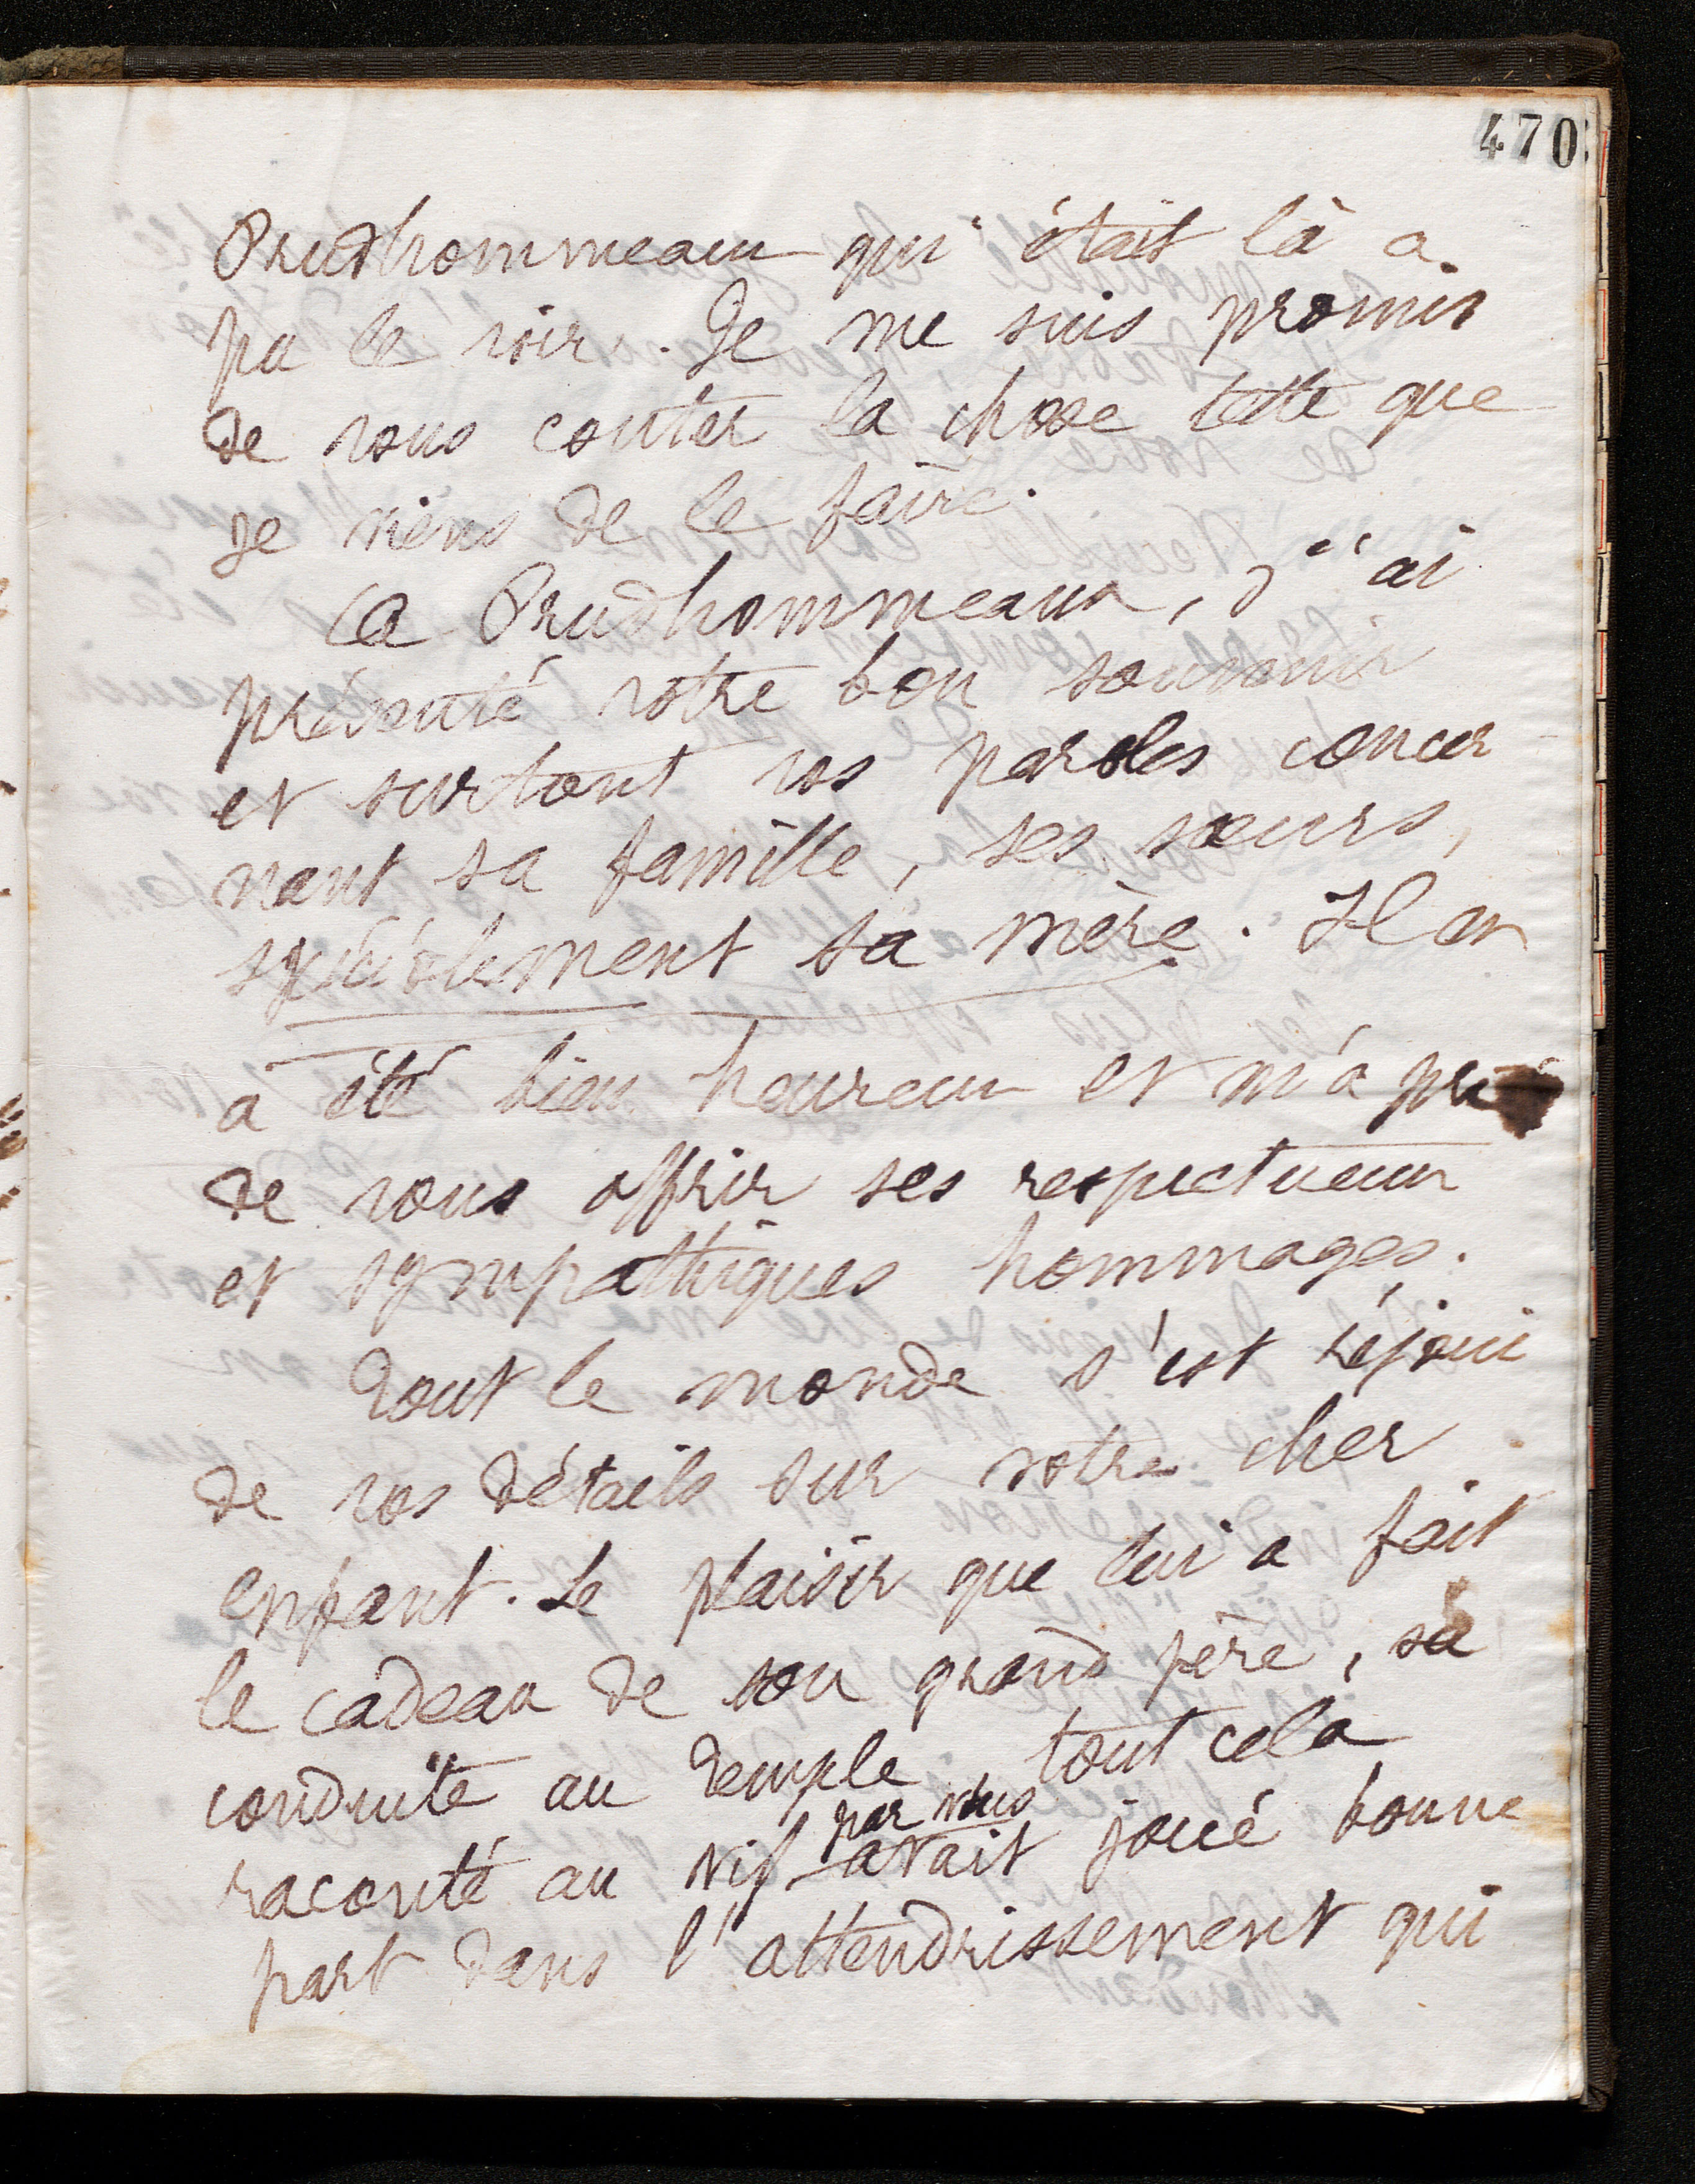 470
Prudhommeaux qui était là a
pu le voir. Je me suis promis
de vous conter la chose telle que
je viens de le faire.
A Prudhommeaux, j'ai
présenté votre bon souvenir
et surtout vos paroles concer
nant sa famille, ses sœurs,
spécialement sa mère. Il en
a été bien heureux et m'a prié
de vous offrir ses respectueux
et sympathiques hommages.
Tout le monde s'est réjoui
de vos détails sur votre cher
enfant. Le plaisir que lui a fait
le cadeau de son grand père, sa
conduite au Temple tout cela
par vous
raconté au vif avait joué bonne
part dans l'attendrissement qui